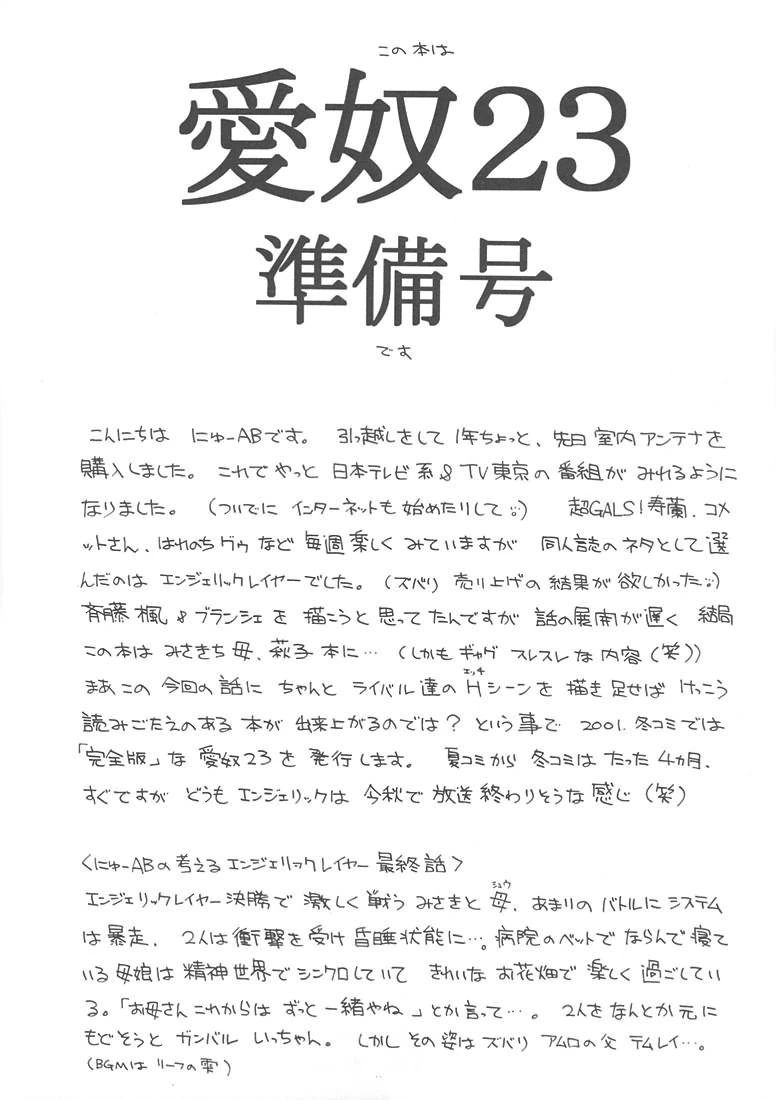 この本は
愛奴23
準備号
です
こんにちは にゅーABです。 引っ越しをして 1年ちょっと、先日 室内アンテナを
購入しました。 これで やっと 日本テレビ系& TV東京の番組が みれるように
なりました。 (ついでに インターネットも始めたりして) 超GALS!寿蘭、コメ
ットさん、はれのちグゥなど 毎週楽しく みていますが 同人誌のネタとして選
んだのは エンジェリックレイヤーでした。(ズバリ 売り上げの結果が欲しかった)
斉藤楓&ブランシェを 描こうと思ってたんですが 話の展開が遅く 結局
この本は みさきち母、萩子本に… (しかもギャグ スレスレな内容(笑))
エッチ
まあこの今回の話に ちゃんと ライバル達のHシーンを 描き足せば けっこう
読みごたえのある 本が 出来上がるのでは? という事で 2001.冬コミでは
「完全版」な 愛奴23を 発行します。 夏コミから 冬コミは たった4ヵ月、
すぐですが どうも エンジェリックは 今秋で 放送終わりそうな感じ(笑)
<にゅーABの考えるエンジェリックレイヤー最終話>
シュウ
エンジェリックレイヤー決勝で 激しく戦う みさきと 母、あまりの バトルに システム
は暴走、 2人は衝撃を受け昏睡状態に…。病院のベットで ならんで寝て
いる母娘は 精神世界でシンクロしていて きれいな お花畑で 楽しく過ごしてい
る。「お母さんこれからは ずっと一緒やね」とか言って…。 2人をなんとか元に
もどそうと ガンバル いっちゃん。 しかし その姿は ズバリ アムロの父 テムレイ…。
(BGMは リーフの雫)